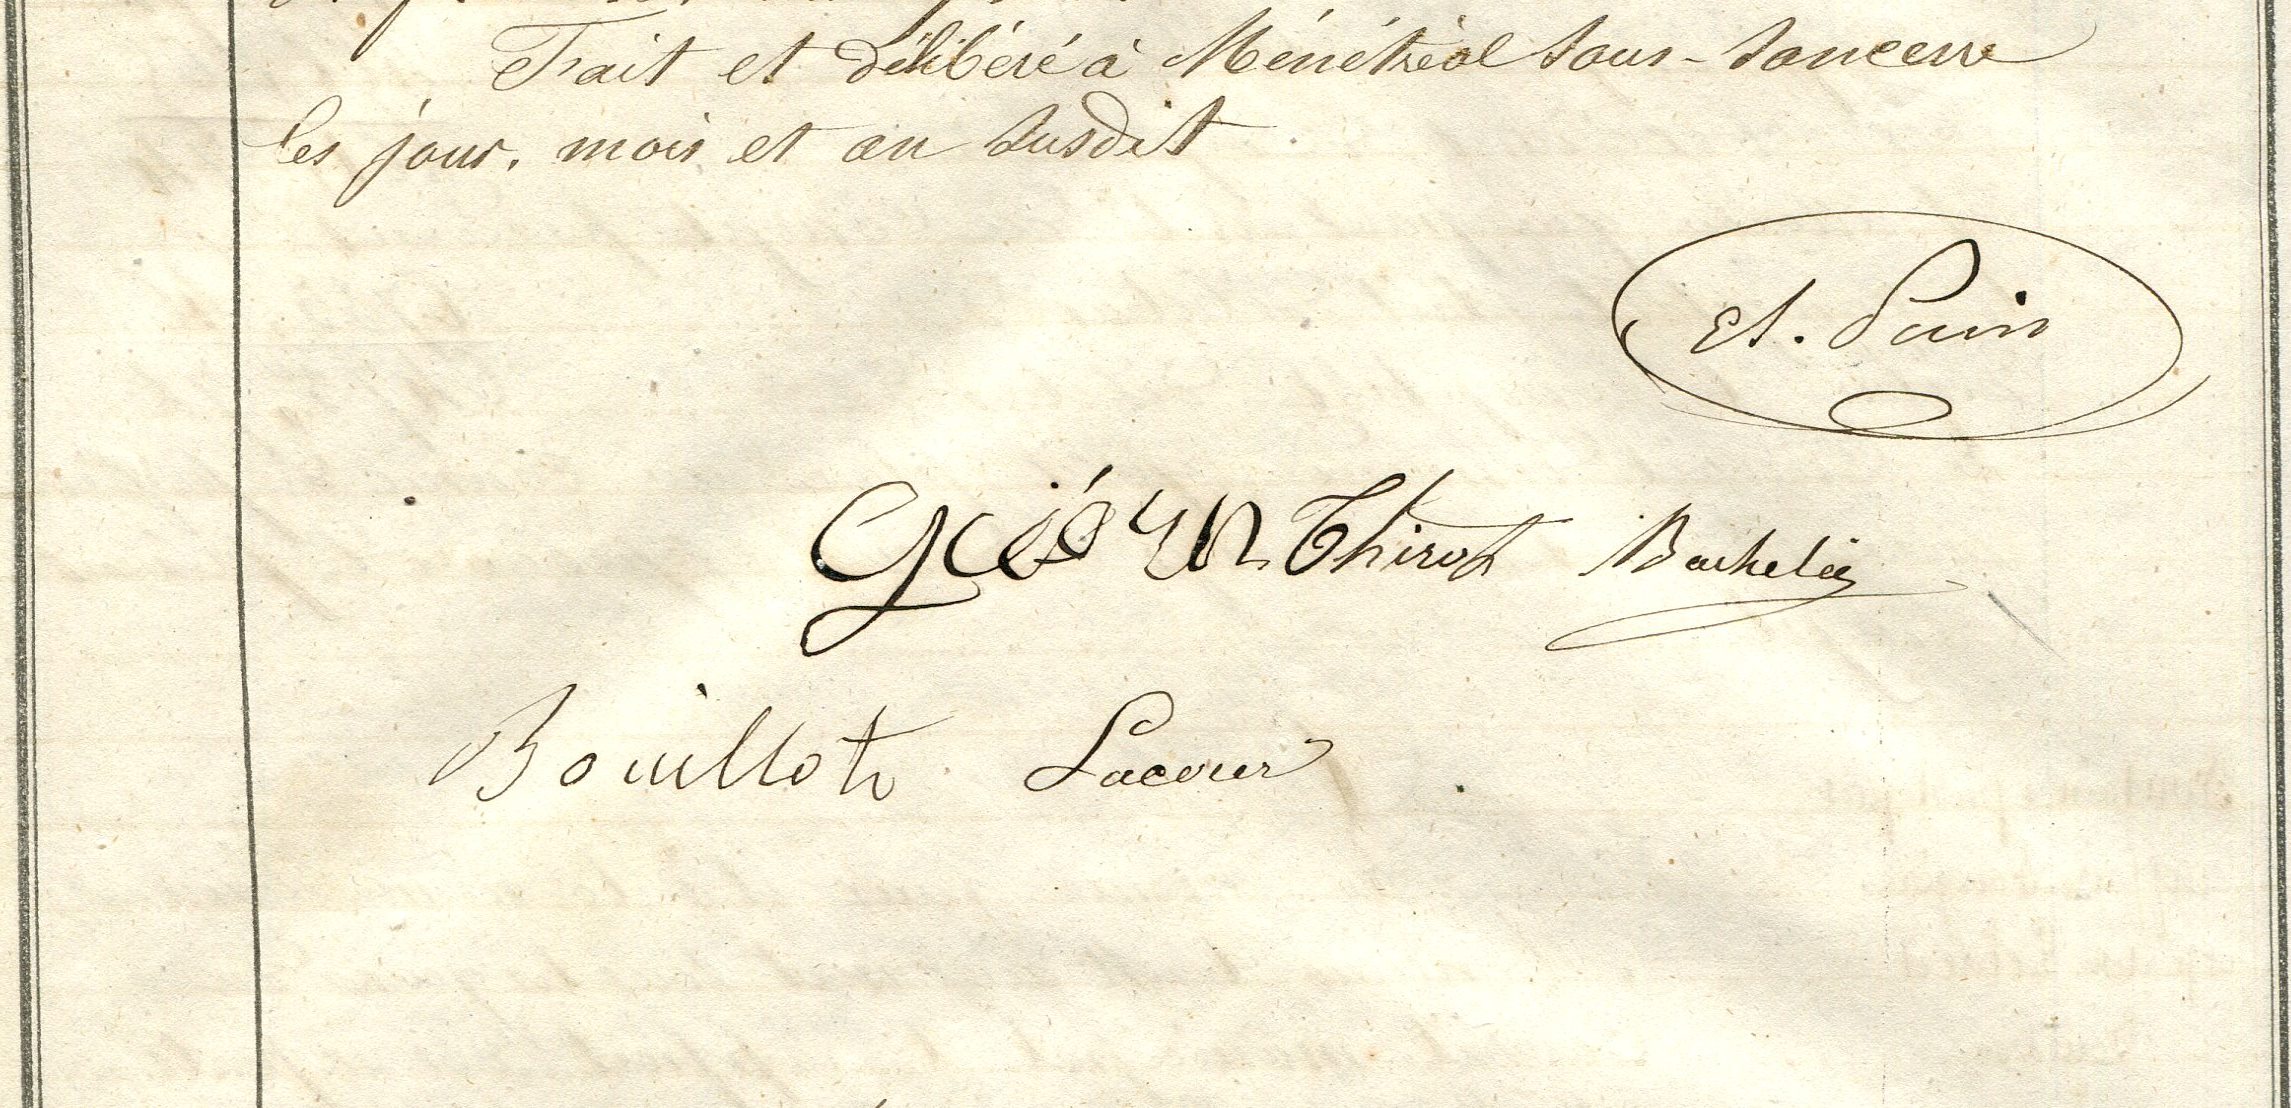 Fait et délibéré à Ménétréol sous-Sancerre
les jour, mois et an susdit
Thirot Bachelier
Bouillot Lacour